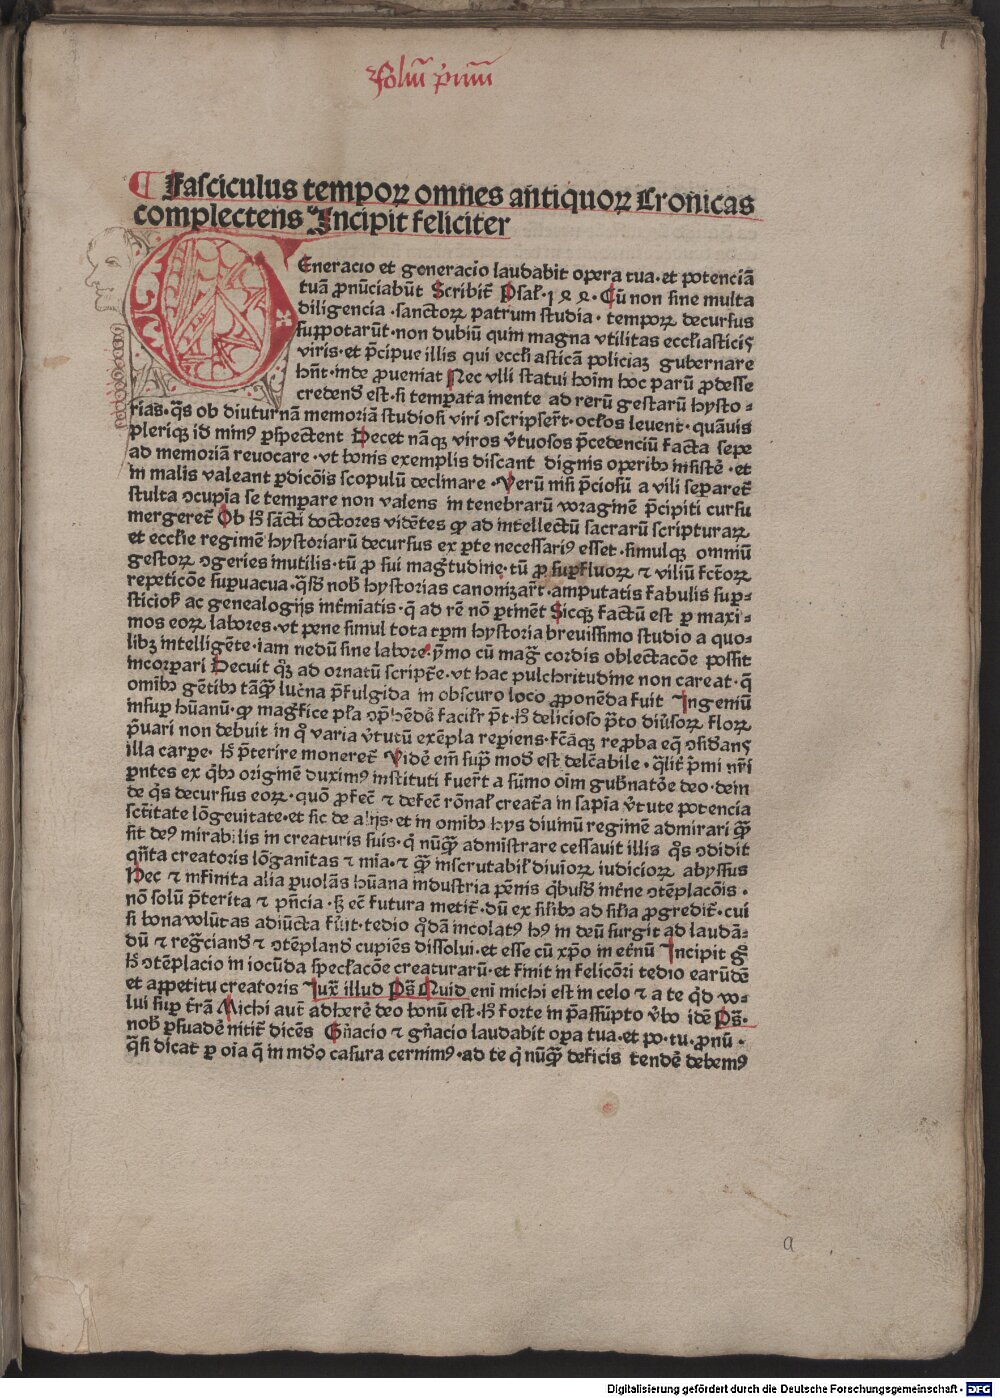 foliū prīmū
1
Fasciculus tempoꝝ omnes antiquoꝝ Cronicas
complectens Incipit feliciter
Eneracio et generacio laudabit opera tua·et potenciā
tuā ꝓnūciabūt Scribit̄ Psal̄·1ꝛꝛ·Cū non sine multa
diligencia·sanctoꝝ patrum studia·tempoꝝ decursus
supputarūt·non dubiū quin magna vtilitas ecclīasticis
viris·et p̄cipue illis qui ecclīasticā policiaꝫ gubernare
hn̄t·inde ꝓueniat Nec vlli statui hoīm hoc parū ꝓdesse
credend̄ est·si temꝑata mente ad rerū gestarū hysto-
rias·q̄s ob diuturnā memoriā studiosi viri ꝯscripser̄t·oc̄los leuent·quāuis
pleriqꝫ id minꝰ ꝑspectent Decet nāqꝫ viros v̄tuosos p̄cedenciū facta sepe
ad memoriā reuocare·vt bonis exemplis discant dignis operibꝰ insistē·et
in malis valeant ꝑdicōis scopulū declinare·Verū nisi p̄ciosū a vili seꝑaret̄
stulta ꝯcupīa se temꝑare non valens in tenebrarū voraginē p̄cipiti cursu
mergeret̄ Ob hͦ sācti doctores vidētes ꝙ ad intellectū sacrarū scripturaꝝ
et ecclīe regimē hystoriarū decursus ex ꝑte necessariꝰ esset·simulqꝫ omniū
gestoꝝ ꝯgeries inutilis·tū ꝓ sui maḡtudine·tū ꝓ suꝑfluoꝝ ⁊ viliū fc̄toꝝ
repeticōe suꝑuacua·q̄sd̄ nob̄ hystorias canonizar̄t·amputatis fabulis suꝑ-
sticiosꝭ ac genealogijs int̄miatis·q̄ ad rē nō ꝑtinēt Sicqꝫ factū est ꝑ maxi-
mos eoꝝ labores·vt pene simul tota tꝑm hystoria breuissimo studio a quo-
libꝫ intelligēte·iam nedū sine labore·ymo cū maḡ cordis oblectacōe possit
incorꝑari Decuit q̄ꝫ ad ornatū script̄e·vt hac pulchritudine non careat·q̄
omībꝰ gētibꝰ tāq̄ lucna p̄fulgida in obscuro loco ꝓponēda fuit Ingeniū
insuꝑ hūanū·ꝙ
p̄uari non debuit in qͦ varia v̄tutū exēpla reperiens
illa carpe·hͦ p̄terire moneret̄ Vidē em̄ suꝑ mod̄ est delc̄abile·q̄lit̄ p̄mi nr̄i
ꝑntes ex q̄bꝰ originē duximꝰ instituti fuer̄t a sūmo oīm gub̄natōe deo·dein
de q̄s decursus eoꝝ·quō ꝓfec̄ ⁊ defec̄ rōnal̄ creat̄a in sapīa v̄tute potencia
sc̄titate lōgeuitate·et sic de alijs·et in omībꝰ hys diuinū regimē admirari q̄
sit deꝰ mirabilis in creaturis suis·q̄ nūq̄ admīstrare cessauit illis q̄s ꝯdidit
qn̄ta creatoris lōganitas ⁊ mīa·⁊ q̄ inscrutabil̄ diuīoꝝ iudicioꝝ abyssus
Nec ⁊ infinita alia ꝑuolās hūana industria ꝑēnis q̄busd̄ int̄ne ꝯtēplacōis·
nō solū p̄terita ⁊ pn̄cia·hꝫ ec̄ futura metit̄·dū ex silibꝰ ad silia ꝓgredit̄·cui
si bona volūtas adiūcta fūit·tedio q̄dā incolatꝰ hꝰ in deū surgit ad laudā-
dū ⁊ regr̄ciand̄ ⁊ ꝯtēpland̄ cupiēs dissolui·et esse cū xp̄o in et̄nū Incipit gͦ
hͦ ꝯtēplacio in iocūda specl̄acōe creaturarū·et finit in felicōri tedio earūdē
et appetitu creatoris Iux̄ illud Ps̄ Quid enī michi est in celo ⁊ a te q̄d vo-
lui suꝑ t̄rā Michi aut̄ adherē deo bonū est·hͦ forte in p̄assūpto v̄bo idē Ps̄·
nob̄ ꝑsuadē nitit̄ dicēs Gn̄acio ⁊ gn̄acio laudabit oꝑa tua·et po·tu·ꝓnū·
q̄si dicat ꝑ oīa q̄ in mdͦo casura cernimꝰ·ad te q̄ nūq̄ deficis tendē debemꝰ
a
Digitalisierung gefördert durch die Deutsche Forschungsgemeinschaft - DFG